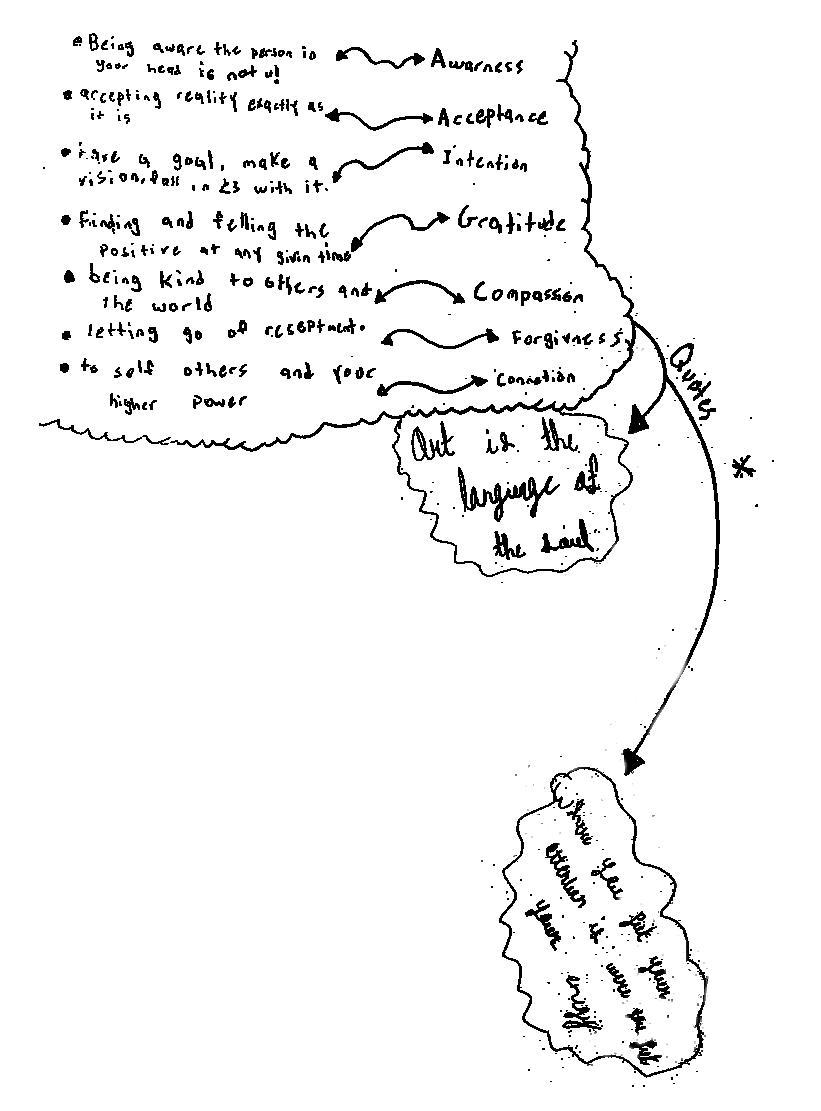 • Being aware the person in Awarness
your head is not u!
• accepting reality exactly as Acceptance
it is
• Have a goal, make a Intention
vision, fall in <3 with it.
• Finding and felling the Gratitude
positive at any givin time
• being kind to others and Compassion
the world
• letting go of resentment. Forgivness
• to self others and your Connetion
higher power
Quotes
*
Art is the
language of
the soul
you put your
attention is were you put
your energy